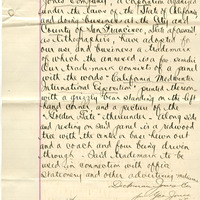 Jones Company, a corporation organized
under the laws of the State of California
and doing business at the City and
County of San Francisco, State aforesaid
as Lithographers, have adopted for
our use and business a trademark
of which the annexed is a
Our trade-mark consists of a panel
with the words "California Midwinter
International Exposition" printed thereon,
with a grizzly bear standing on the left
hand corner and a picture of the
"Golden Gate" thereunder - along side
and resting on said panel is a redwood
tree with the centre or base hewn out
and a coach and four being driven
through - Said trademark to be
used in connection with office
stationery and other advertising
Dickman Jones Co